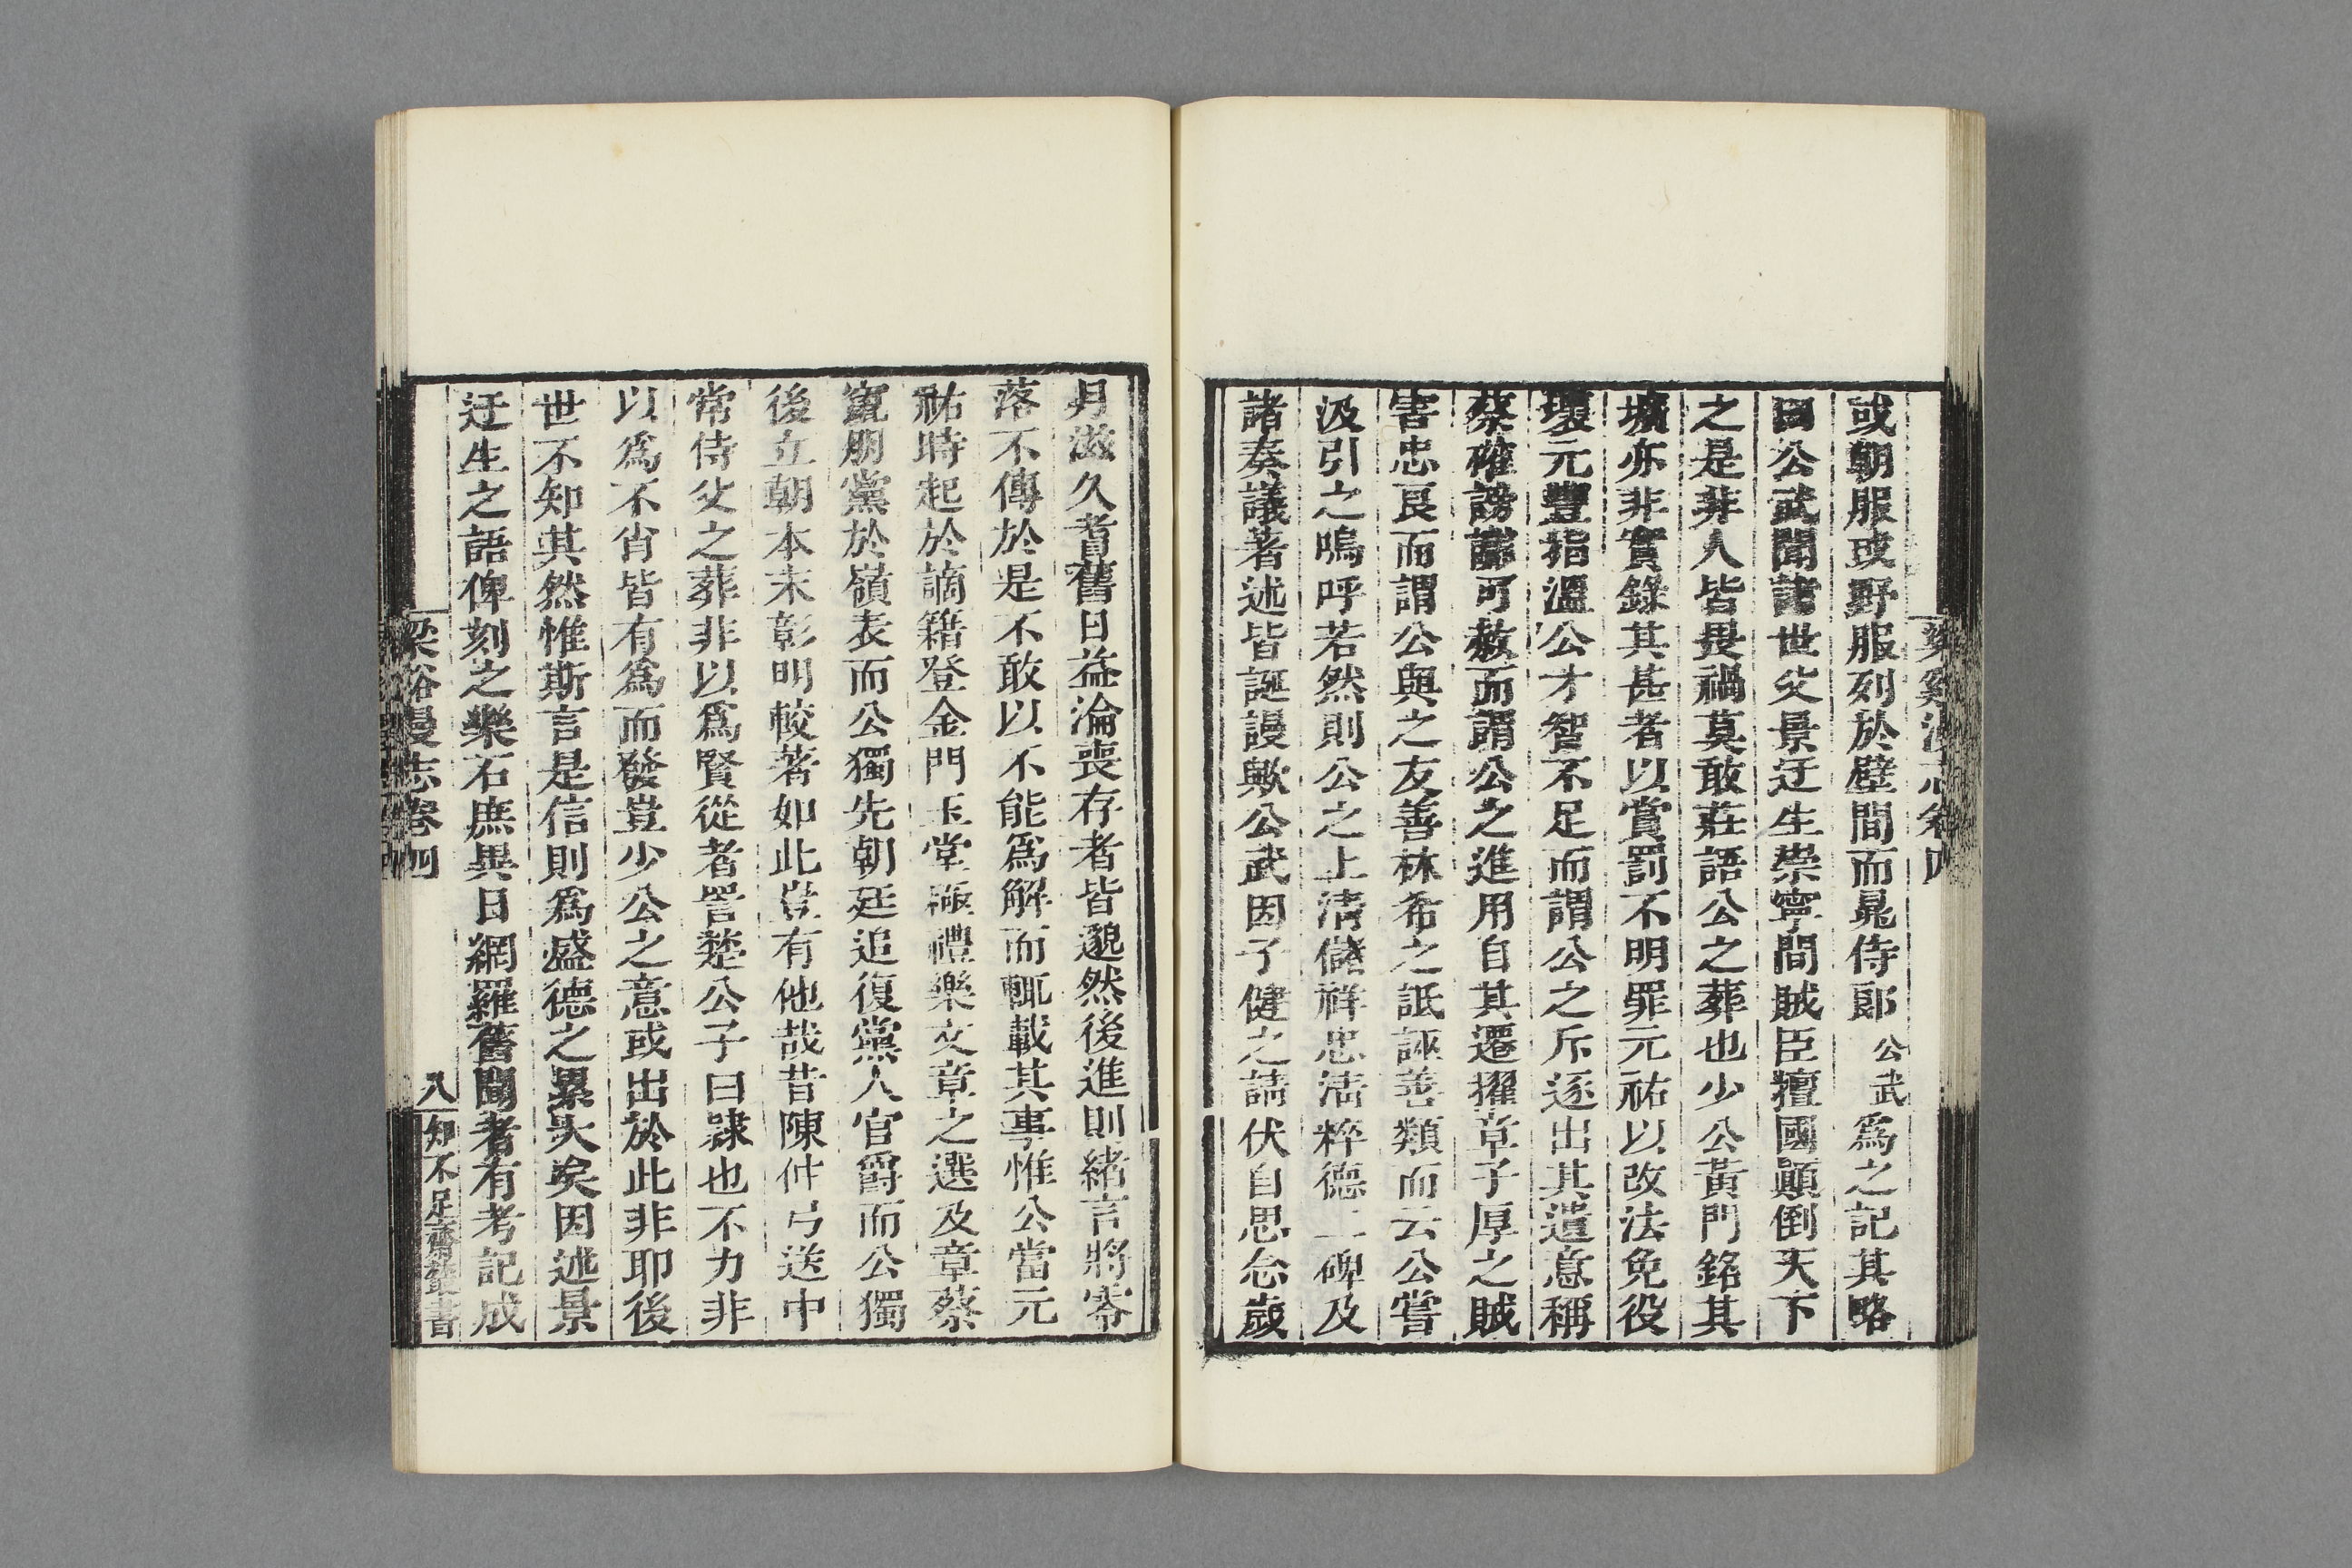 或朝服或野服列於壁間而晁侍郞公武爲之記其略
曰公武聞諸世父景迂生崇寧間賊臣擅國顚倒天下
之是非人皆畏禍莫敢莊語公之葬也少公黃門銘其
壙亦非實錄其甚者以賞罰不明罪元祐以改法免役
壞元豐指溫公才智不足而謂公之斥逐出其遺意稱
蔡確謗讟可赦而謂公之進用自其遷擢章子厚之賊
害忠良而謂公與之友善林希之詆誣善類而云公嘗
汲引之嗚呼若然則公之上淸儲祥忠淸粹德二碑及
諸奏議著述皆誕謾歟公武因子健之請伏自思念歲
月滋久耆舊日益淪喪存者皆邈然後進則緒言將零
落不傳於是不敢以不能爲解而輒載其事惟公當元
祐時起於謫籍登金門玉堂極禮樂文章之選及章蔡
竄朋黨於嶺表而公獨先朝廷追復黨人官爵而公獨
後立朝本末彰明較著如此豈有他哉昔陳仲弓送中
常侍父之葬非以爲賢從者詈楚公子曰隷也不力非
以爲不肖皆有爲而發豈少公之意或出於此非耶後
世不知其然惟斯言是信則爲盛德之累大矣因述景
迂生之語俾刻之樂石庶異日網羅舊聞者有考記成
梁谿漫志卷四
八
知不足齋叢書